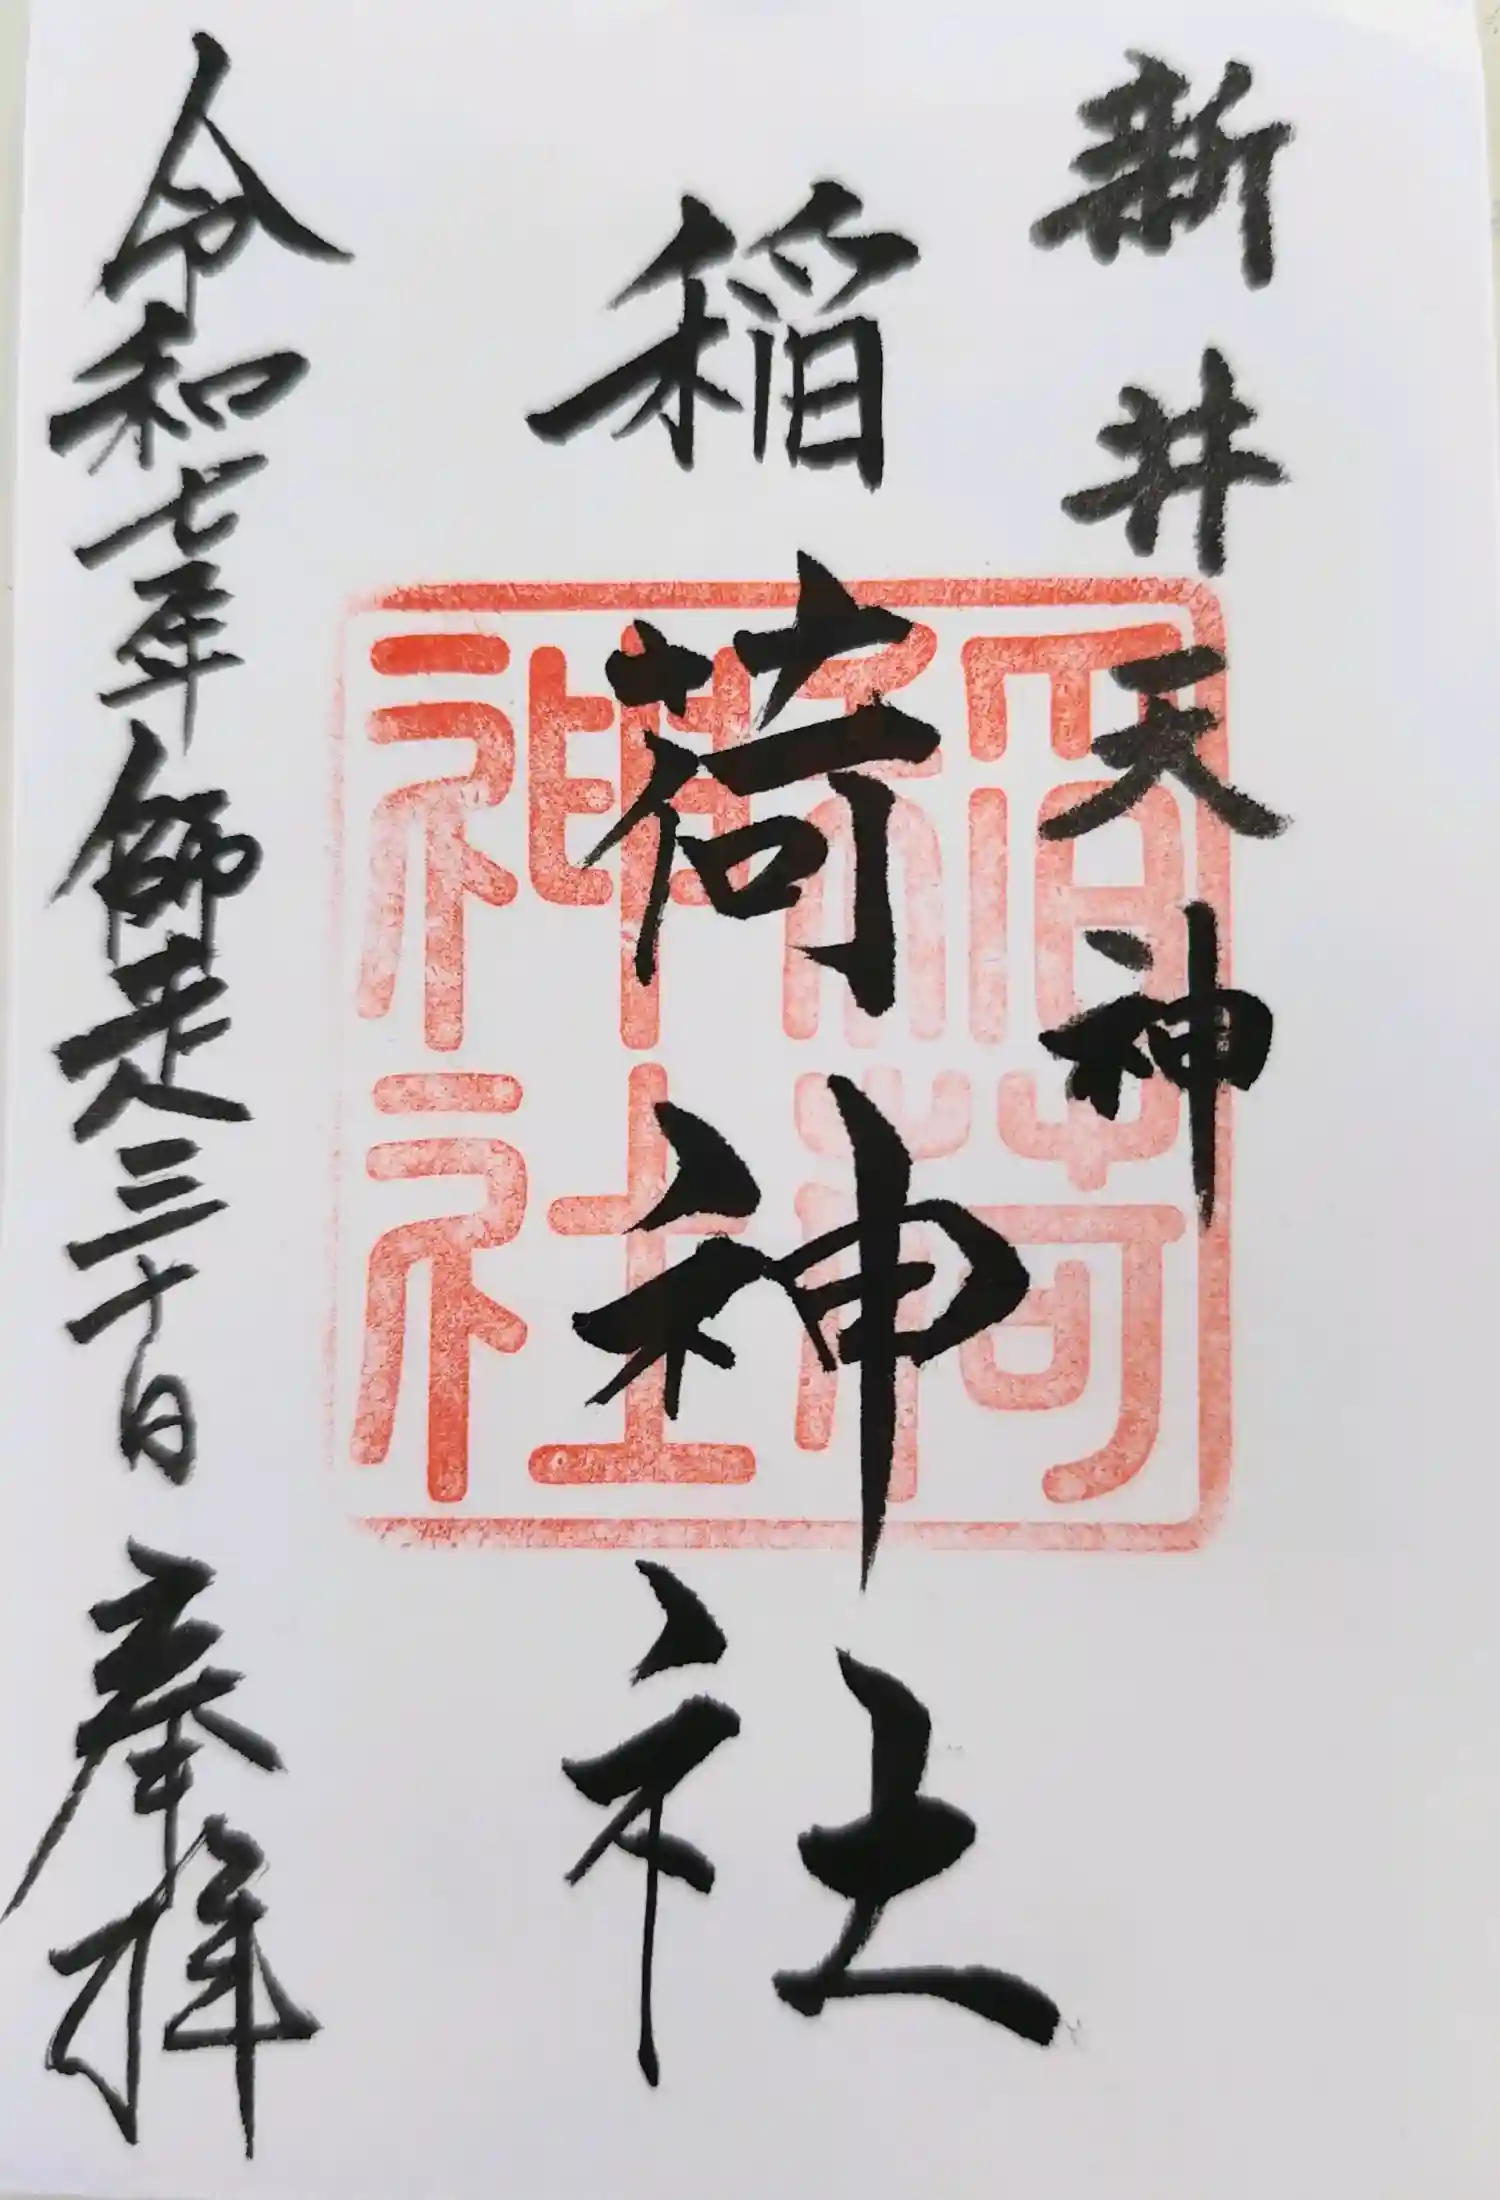 新井天神
稲荷神社
稲荷
神社
令和七年師走三十日 奉拝